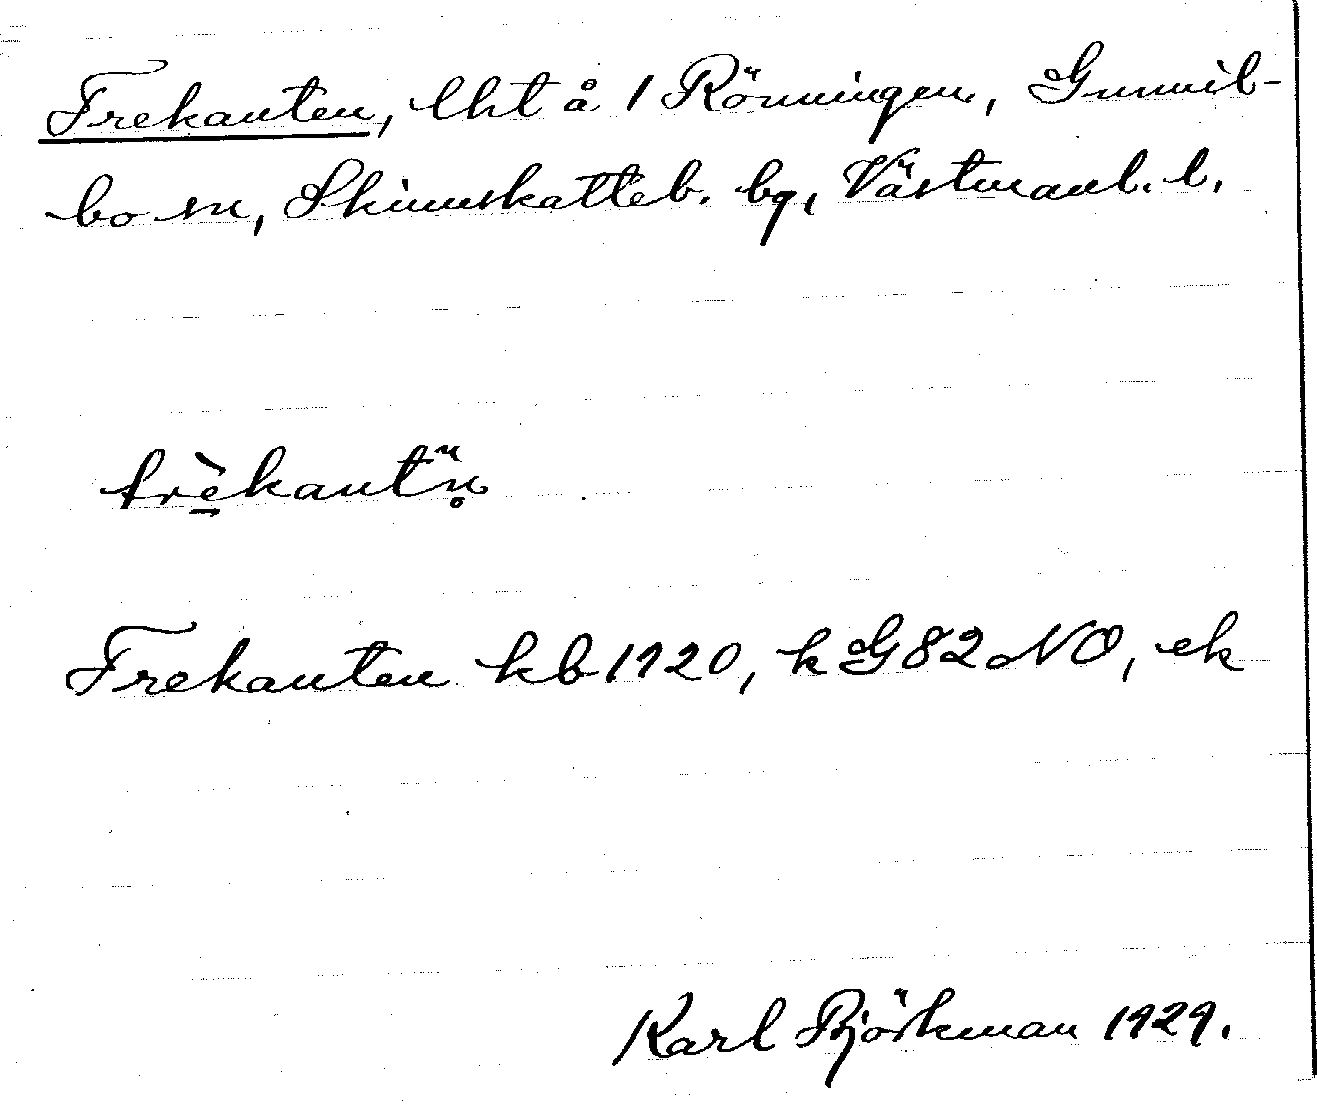 Trekanten, lht å 1 Rönningen, Gunnil-
bo sn, Skinnskatteb. bg, Västmanl. l.
trèkantn̥
Trekanten kb 1920, k G 82 NO, ek
Karl Björkman 1929.